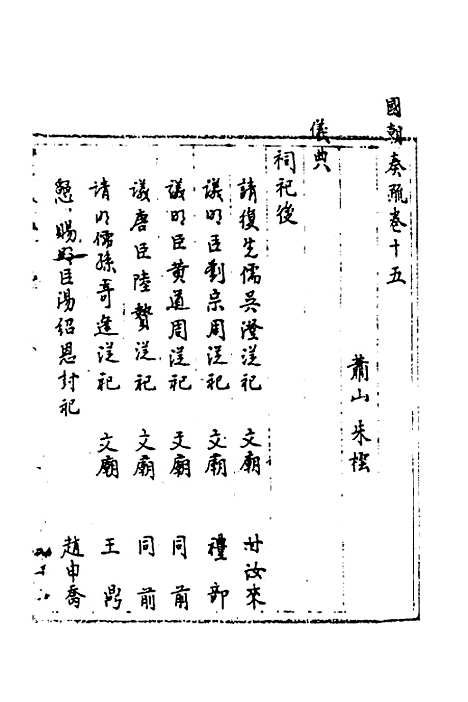 國朝奏疏卷十五
蕭山朱樗
儀典
祠祀後
請復先儒吳澄從祀 文廟 甘汝來
議明臣劉宗周從祀 文廟 禮部
議明臣黄道周從祀 文廟 同前
議唐臣陸贄從祀 文廟 同前
請明儒孫奇逢從祀 文廟 王鼎
懇賜明臣湯紹恩封祀 趙申喬